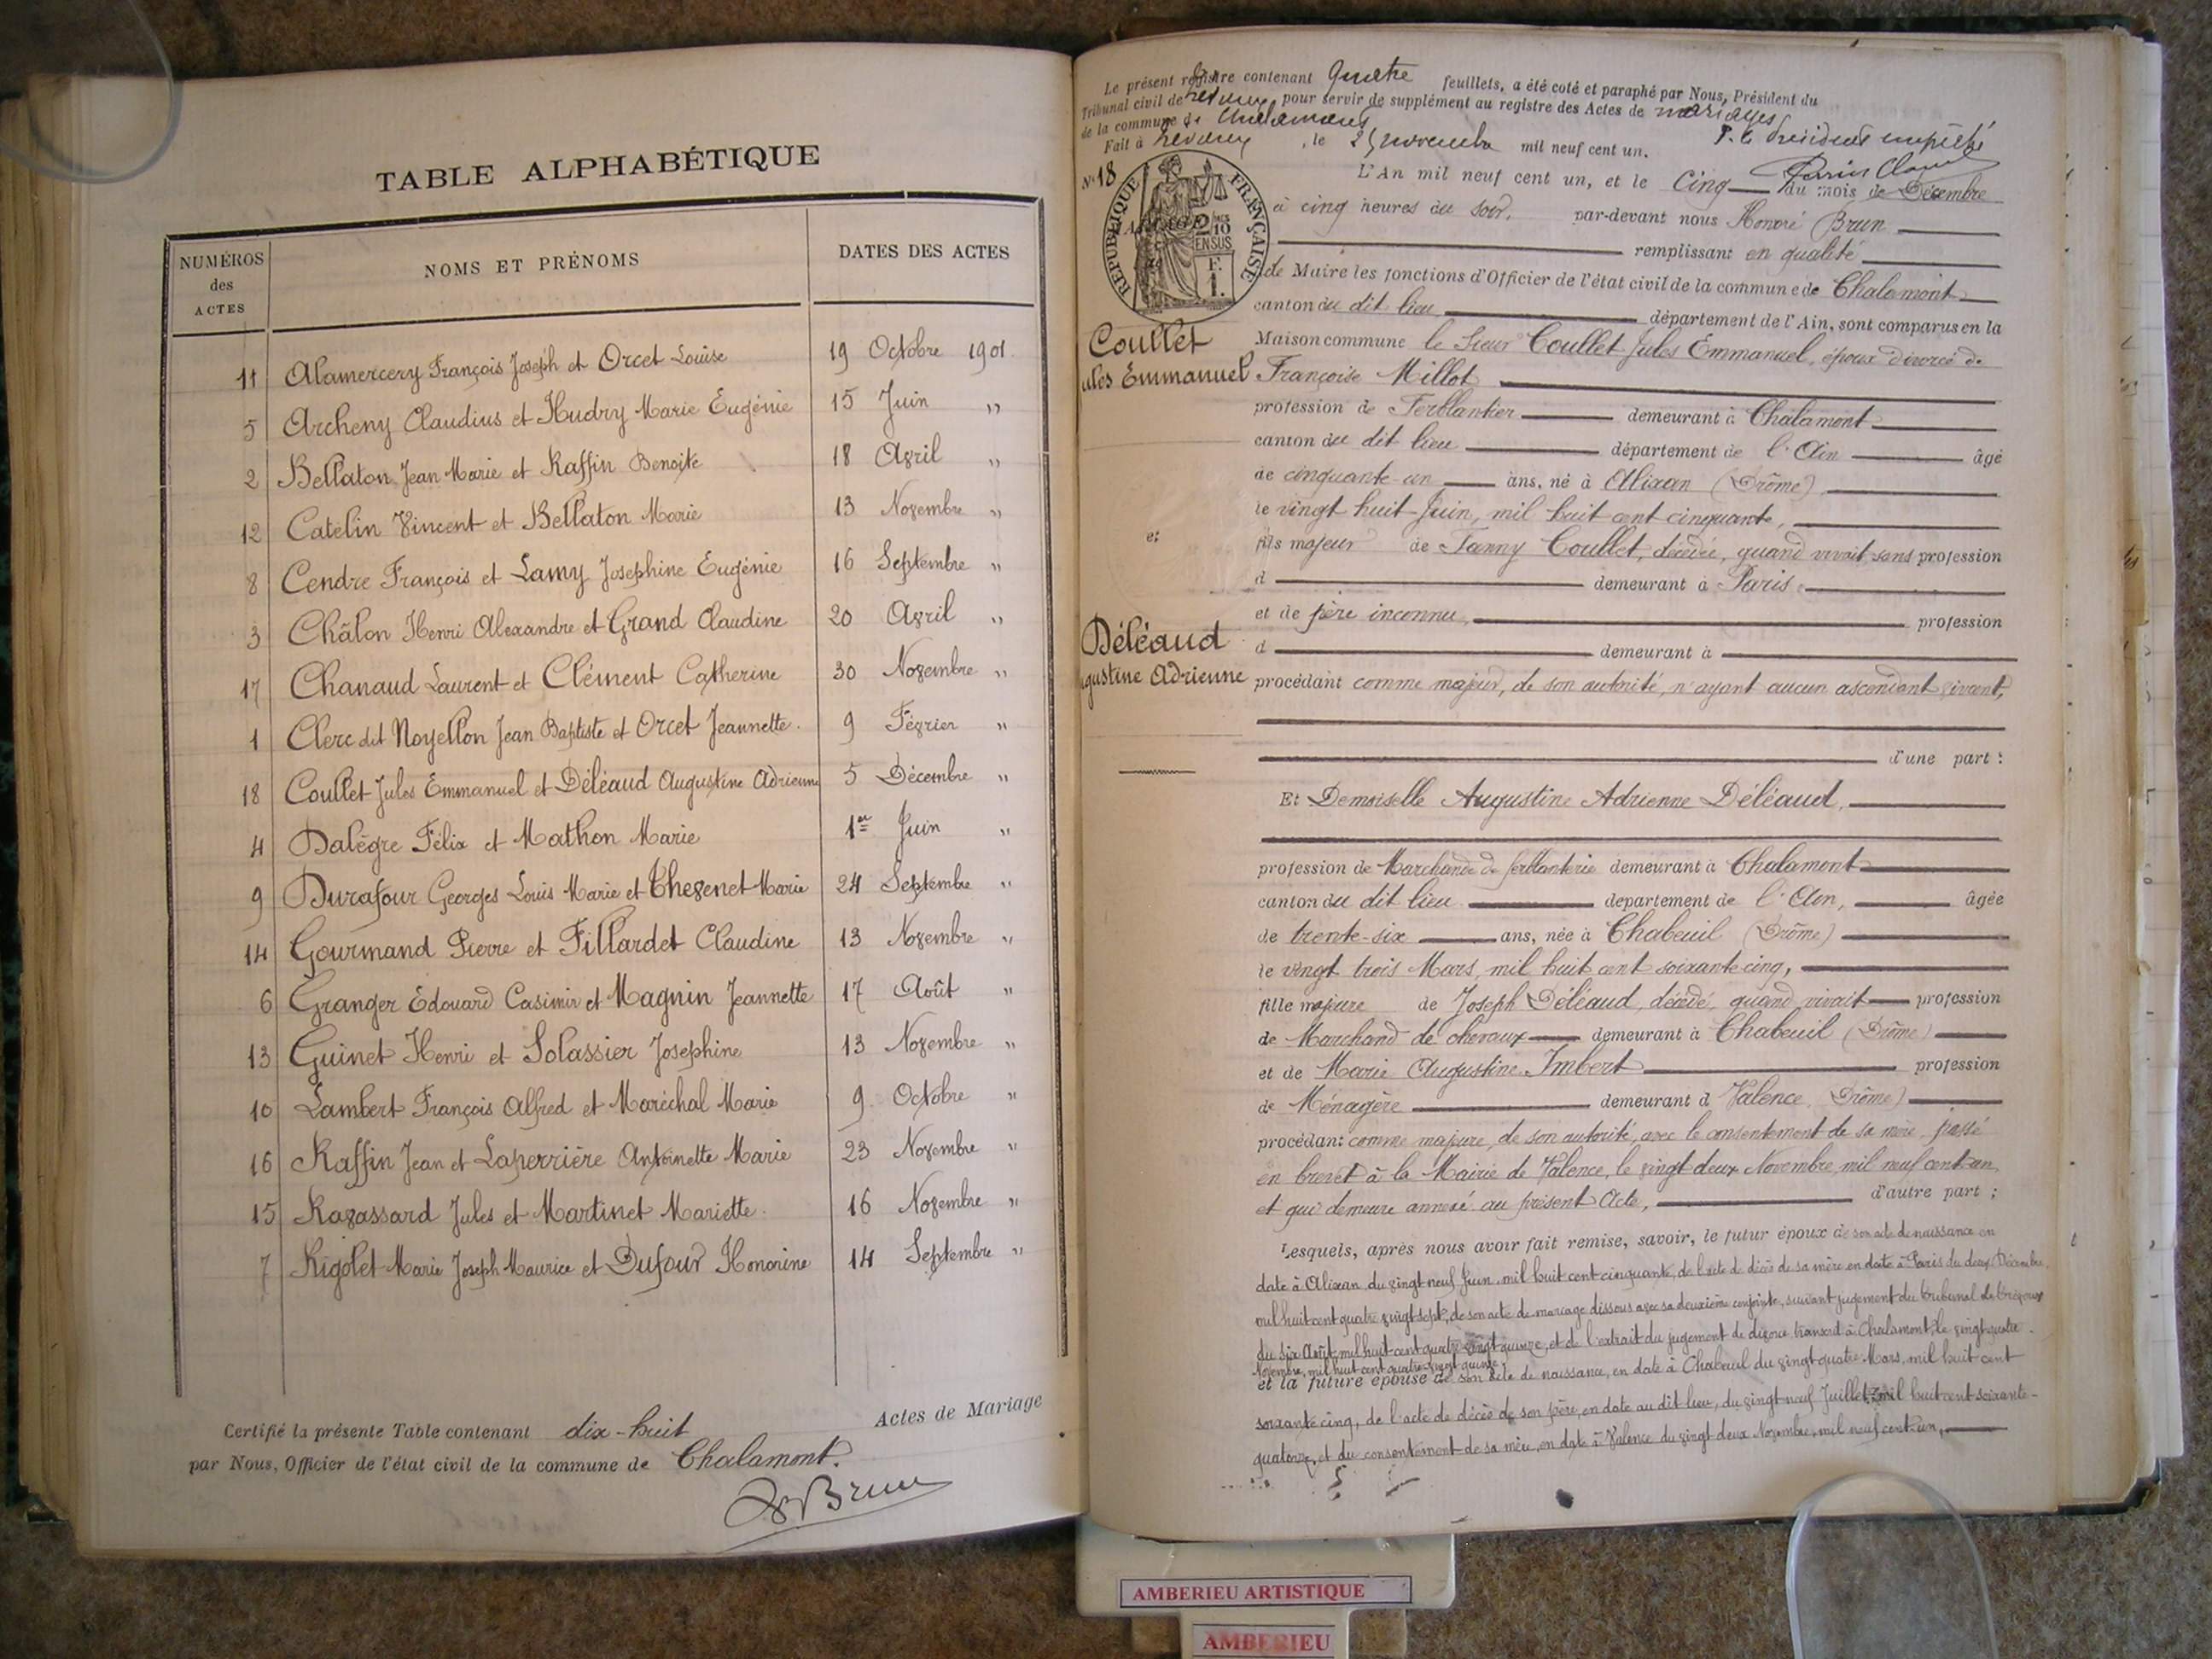 TABLE ALPHABÉTIQUE
NUMÉROS des ACTES
NOMS ET PRÉNOMS
DATES DES ACTES
11 Alamercery François Joseph et Orcet Louise 19 Octobre 1901
5 Archeny Claudius et Hudry Marie Eugénie 15 Juin "
2 Bellaton Jean Marie et Raffin Benoîte 18 Avril "
12 Catelin Vincent et Bellaton Marie 13 Novembre "
8 Cendre François et Lamy Josephine Eugénie 16 Septembre "
3 Châlon Henri Alexandre et Grand Claudine 20 Avril "
17 Chanaud Laurent et Clément Catherine 30 Novembre "
1 Clerc dit Noyellon Jean Baptiste et Orcet Jeannette. 9 Février "
18 Coullet Jules Emmanuel et Déléaud Augustine Adrienne 5 Décembre "
4 Dalègre Félix et Mathon Marie 1er Juin "
9 Durafour Georges Louis Marie et Thevenet Marie 24 Septembre "
14 Gourmand Pierre et Fillardet Claudine 13 Novembre "
6 Granger Edouard Casimir et Magnin Jeannette 17 Août "
13 Guinet Henri et Solassier Josephine 13 Novembre "
10 Lambert François Alfred et Maréchal Marie 9 Octobre "
16 Raffin Jean et Laperrière Antoinette Marie 23 Novembre "
15 Ravassard Jules et Martinet Mariette. 16 Novembre "
7 Rigolet Marie Joseph Maurice et Dufour Honorine 14 Septembre "
Certifié la présente Table contenant dix-huit Actes de Mariage
par Nous, Officier de l'état civil de la commune de Chalamont.
Brun
Le présent registre contenant Quatre feuillets, a été coté et paraphé par Nous, Président du
Tribunal civil de Trévoux, pour servir de supplément au registre des Actes de mariages
de la commune de Chalamont
Fait à Trévoux, le 25 novembre mil neuf cent un. P. le Président empêché
N° 18
RÉPUBLIQUE FRANÇAISE
2/10 EN SUS
F. 1.
L'An mil neuf cent un, et le Cinq du mois de Décembre
à cinq heures du soir, par-devant nous Honoré Brun
remplissant en qualité
de Maire les fonctions d'Officier de l'état civil de la commune de Chalamont
canton du dit lieu département de l'Ain, sont comparus en la
Coullet
ules Emmanuel
Maison commune le Sieur Coullet Jules Emmanuel, époux divorcé de
Françoise Millot
profession de Ferblantier demeurant à Chalamont
canton du dit lieu département de l'Ain âgé
de cinquante-un ans, né à Alixan (Drôme)
le vingt huit Juin, mil huit cent cinquante,
et
fils majeur de Fanny Coullet, décédée, quand vivait sans profession
d demeurant à Paris
et de père inconnu, profession
Déléaud
gustine Adrienne
d demeurant à
procédant comme majeur, de son autorité, n'ayant aucun ascendant vivant,
d'une part :
Et Demoiselle Augustine Adrienne Déléaud,
profession de Marchande de ferblanterie demeurant à Chalamont
canton du dit lieu département de l'Ain, âgée
de trente-six ans, née à Chabeuil (Drôme)
le vingt trois Mars, mil huit cent soixante-cinq,
fille majeure de Joseph Déléaud, décédé, quand vivait profession
de Marchand de chevaux demeurant à Chabeuil (Drôme)
et de Marie Augustine Imbert profession
de Ménagère demeurant à Valence (Drôme)
procédant comme majeure, de son autorité, avec le consentement de sa mère, passé
en brevet à la Mairie de Valence, le vingt deux Novembre, mil neuf cent un,
et qui demeure annexé au présent Acte, d'autre part ;
Lesquels, après nous avoir fait remise, savoir, le futur époux de son acte de naissance en
date à Alixan du vingt neuf Juin, mil huit cent cinquante, de l'acte de décès de sa mère en date à Paris du deux Décembre,
mil huit cent quatre vingt sept, de son acte de mariage dissous avec sa deuxième conjointe, suivant jugement du tribunal de Trévoux
du six Août, mil huit cent quatre vingt quinze, et de l'extrait du jugement de divorce transcrit à Chalamont, le vingt quatre
Novembre, mil huit cent quatre vingt quinze,
et la future épouse de son acte de naissance, en date à Chabeuil du vingt quatre Mars, mil huit cent
soixante cinq, de l'acte de décès de son père, en date au dit lieu, du vingt neuf Juillet, mil huit cent soixante-
quatorze, et du consentement de sa mère, en date à Valence du vingt deux Novembre, mil neuf cent un,
AMBERIEU ARTISTIQUE
AMBERIEU